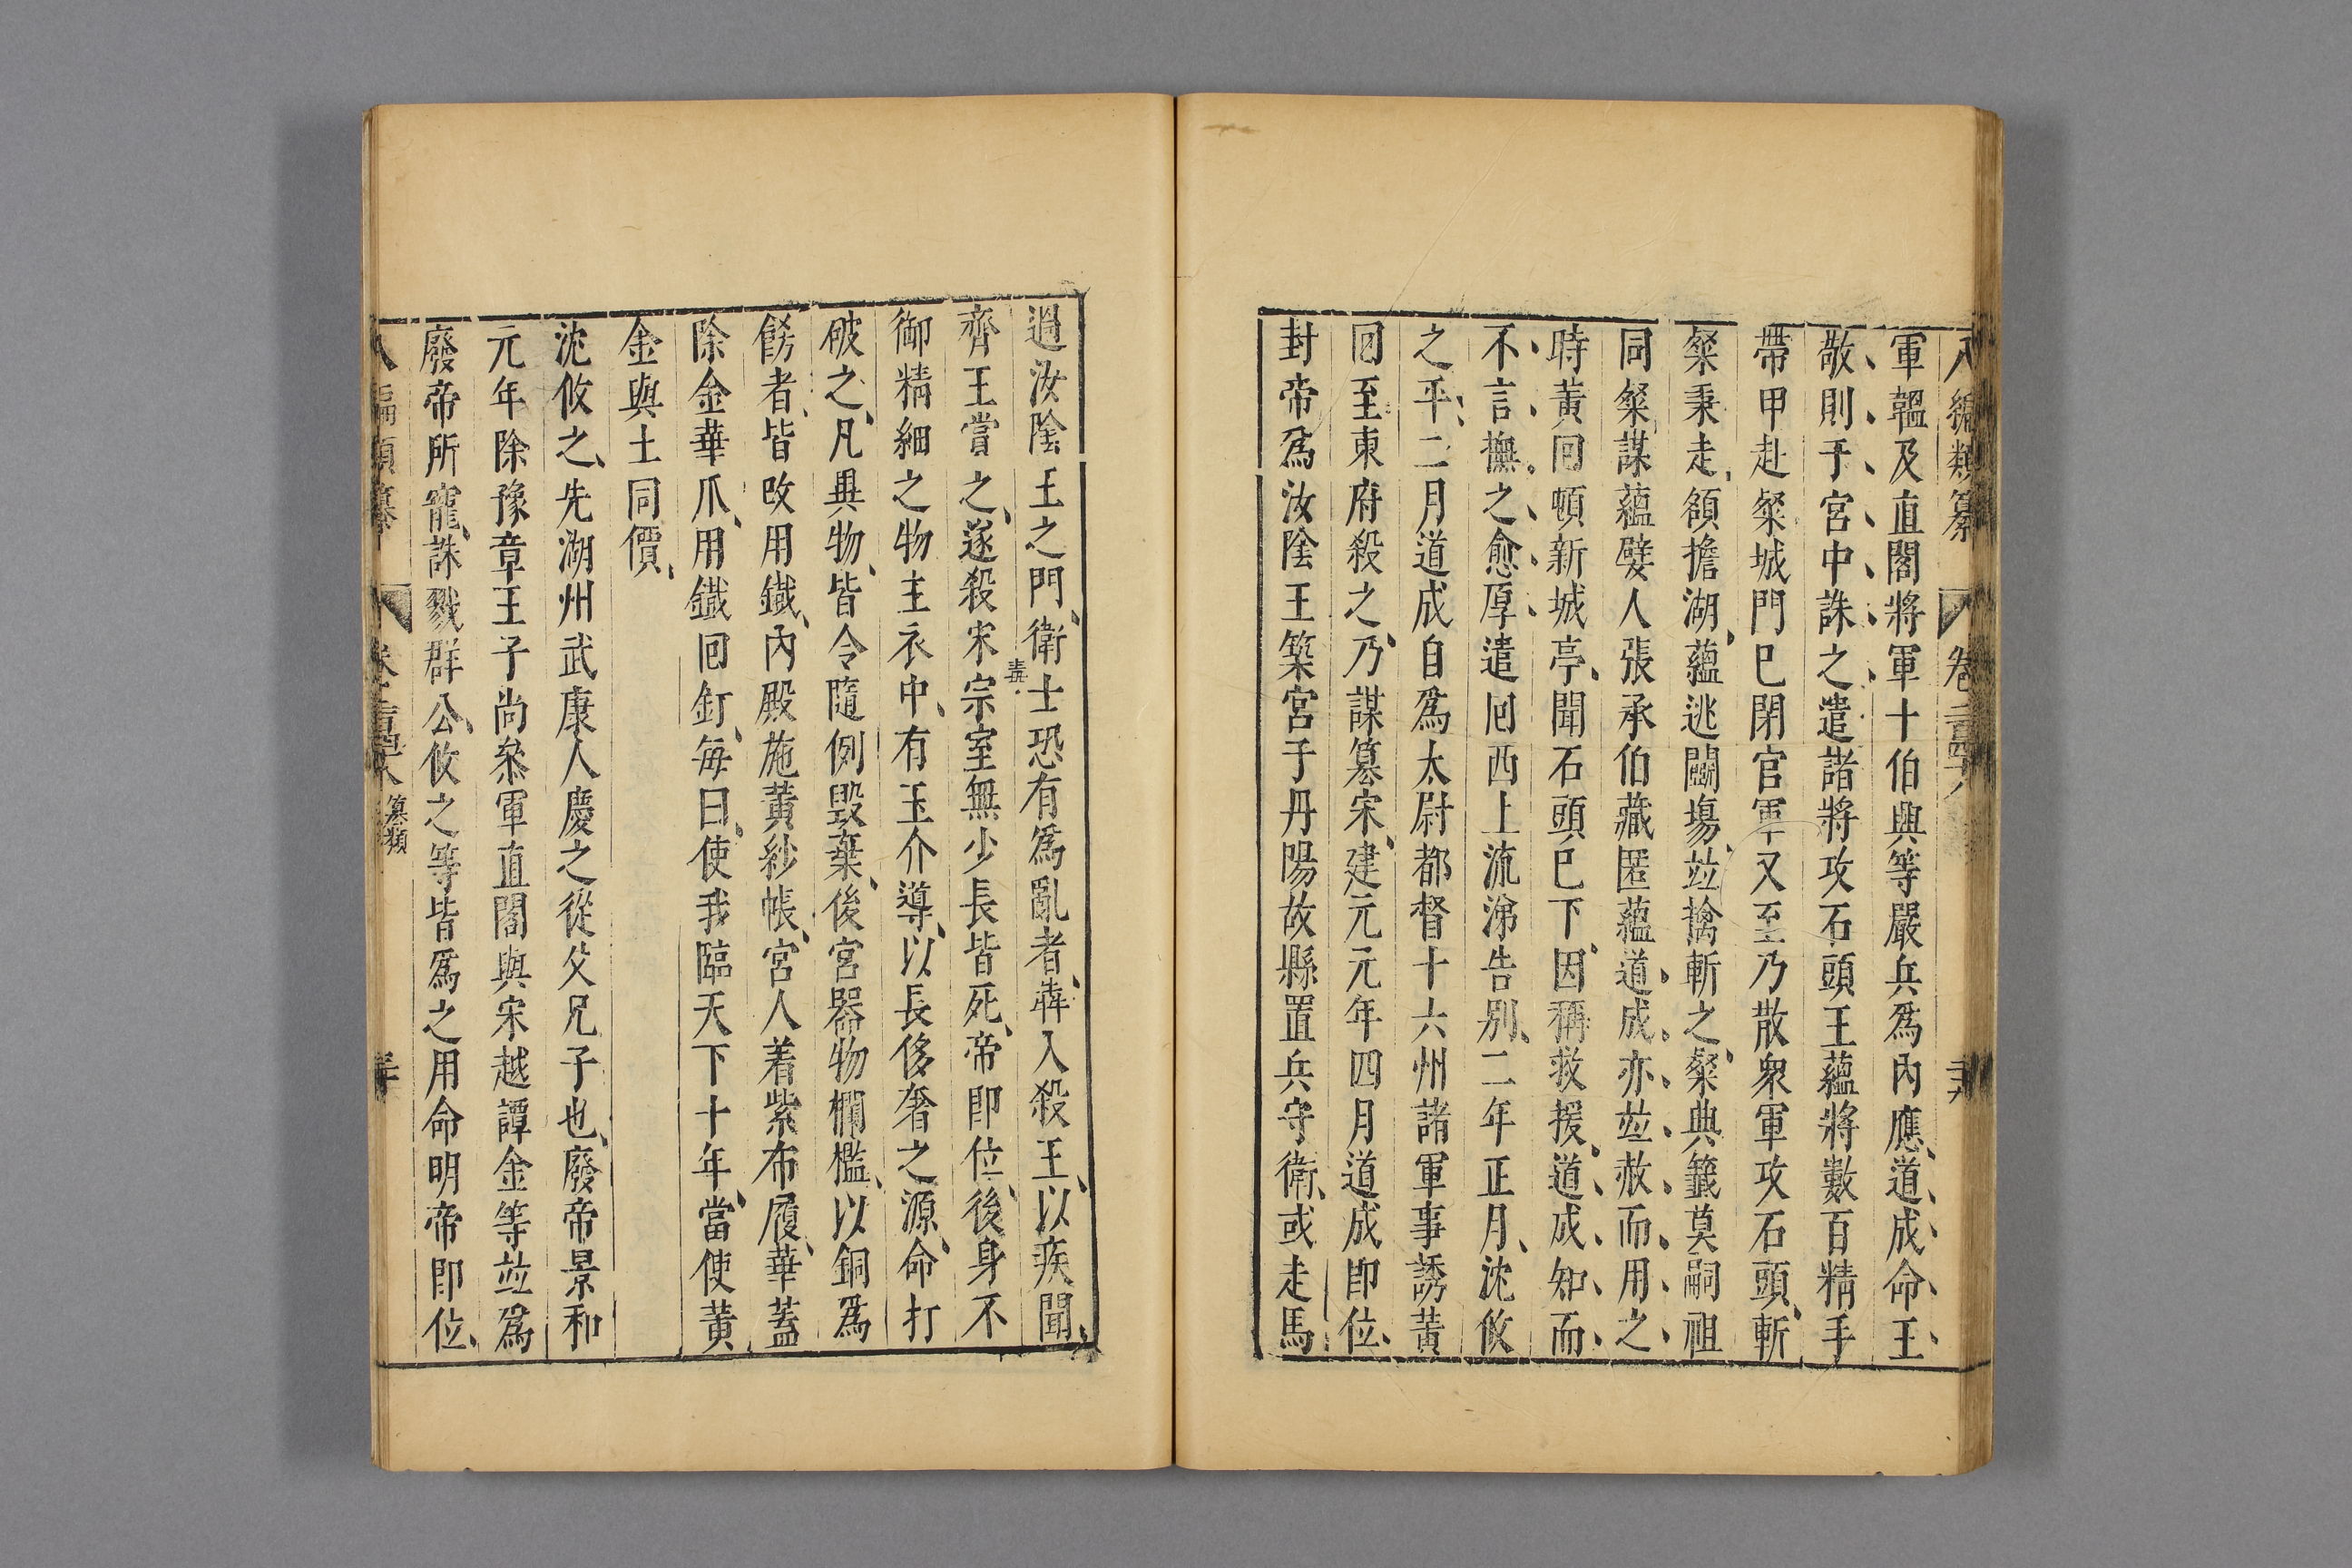 八編類纂 卷二百四十八
軍韞及直閤將軍十伯興等嚴兵爲內應、道成命王
敬則于宮中誅之遣諸將攻石頭王蘊將數百精手
帶甲赴粲城門已閉官軍又至乃散衆軍攻石頭、斬
粲秉走頟擔湖、蘊逃鬬塲、竝擒斬之、粲典籤莫嗣祖
同粲謀蘊嬖人張承伯藏匿蘊道成亦竝赦而用之
時黃回頓新城亭、聞石頭已下、因稱救援、道成知而
不言撫之愈厚遣回西上流涕告別、二年正月、沈攸
之平、二月道成自爲太尉都督十六州諸軍事誘黃
回至東府殺之、乃謀篡宋、建元元年四月道成即位、
封帝爲汝陰王築宮于丹陽故縣置兵守衛、或走馬
過汝陰王之門、衛士恐有爲亂者、犇入殺王、以疾聞、
齊王嘗之、遂殺宋宗室無少長皆死、帝即位、後身不
御精細之物主衣中、有玉介導、以長侈奢之源、命打
破之、凡異物、皆令隨例毀棄、後宮器物欄檻、以銅爲
餝者、皆攺用鐵、內殿施黃紗帳、宮人着紫布履、華蓋
除金華爪、用鐵回釘、每曰、使我臨天下十年、當使黃
金與土同價、
沈攸之、先湖州武康人慶之從父兄子也、廢帝景和
元年除豫章王子尚叅軍直閤與宋越譚金等竝爲
廢帝所寵、誅戮群公、攸之等皆爲之用命明帝即位、
篡類